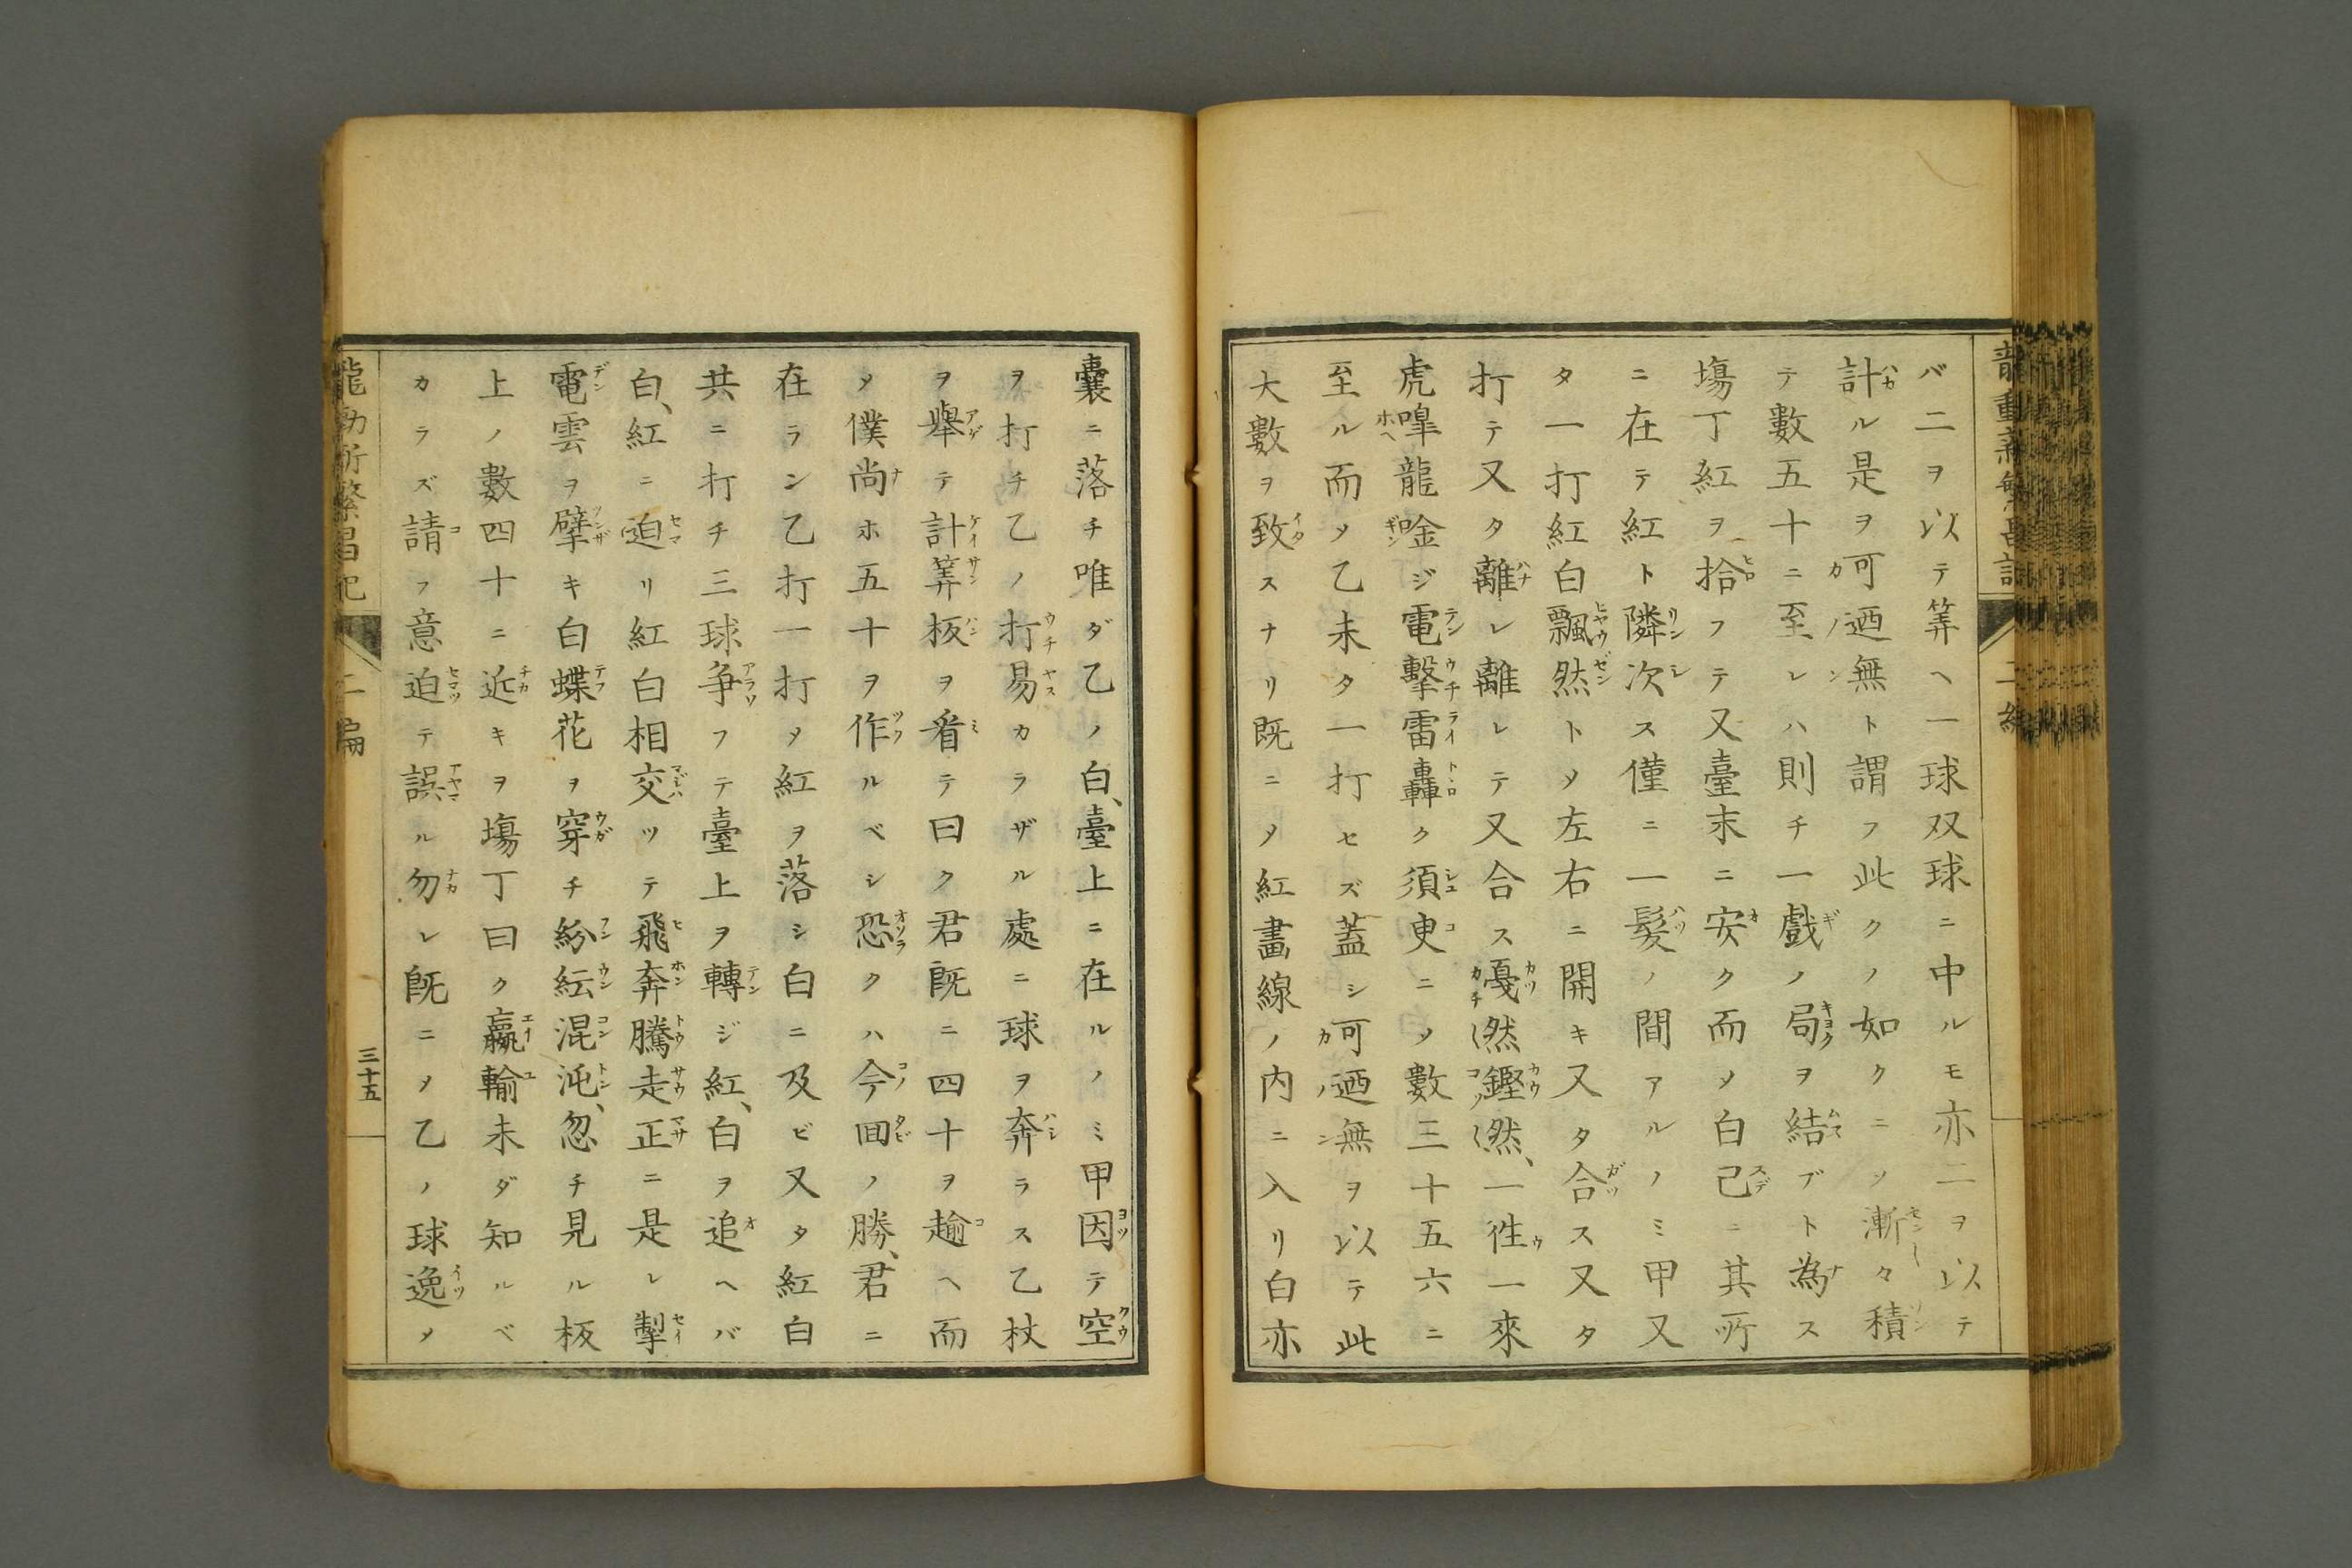 バ二ヲ以テ筭ヘ一球双球ニ中ルモ亦二ヲ以テ
計ル是ヲ可迺無ト謂フ此クノ如クニノ漸々積
テ數五十ニ至レハ則チ一戲ノ局ヲ結ブト為ス
塲丁紅ヲ拾フテ又臺末ニ安ク而ノ白已ニ其所
ニ在テ紅ト隣次ス僅ニ一髮ノ間アルノミ甲又
タ一打紅白飄然トノ左右ニ開キ又タ合ス又タ
打テ又タ離レ離レテ又合ス戞然鏗然、一徃一來
虎嘷龍唫ジ電擊雷轟ク須臾ニノ數三十五六ニ
至ル而ノ乙未タ一打セズ蓋シ可迺無ヲ以テ此
大數ヲ致スナリ既ニノ紅畫線ノ内ニ入リ白亦
囊ニ落チ唯ダ乙ノ白、臺上ニ在ルノミ甲因テ空
ヲ打チ乙ノ打易カラザル處ニ球ヲ奔ラス乙杖
ヲ舉テ計筭板ヲ看テ曰ク君既ニ四十ヲ踰ヘ而
ノ僕尚ホ五十ヲ作ルベシ恐クハ今囬ノ勝、君ニ
在ラン乙打一打ノ紅ヲ落シ白ニ及ビ又タ紅白
共ニ打チ三球爭フテ臺上ヲ轉ジ紅、白ヲ追ヘバ
白、紅ニ迫リ紅白相交ツテ飛奔騰走正ニ是レ掣
電雲ヲ擘キ白蝶花ヲ穿チ紛紜混沌、忽チ見ル板
上ノ數四十ニ近キヲ塲丁曰ク贏輸未ダ知ルベ
カラズ請フ意迫テ誤ル勿レ既ニノ乙ノ球逸ノ
龍動新繁昌記
二編
三十五